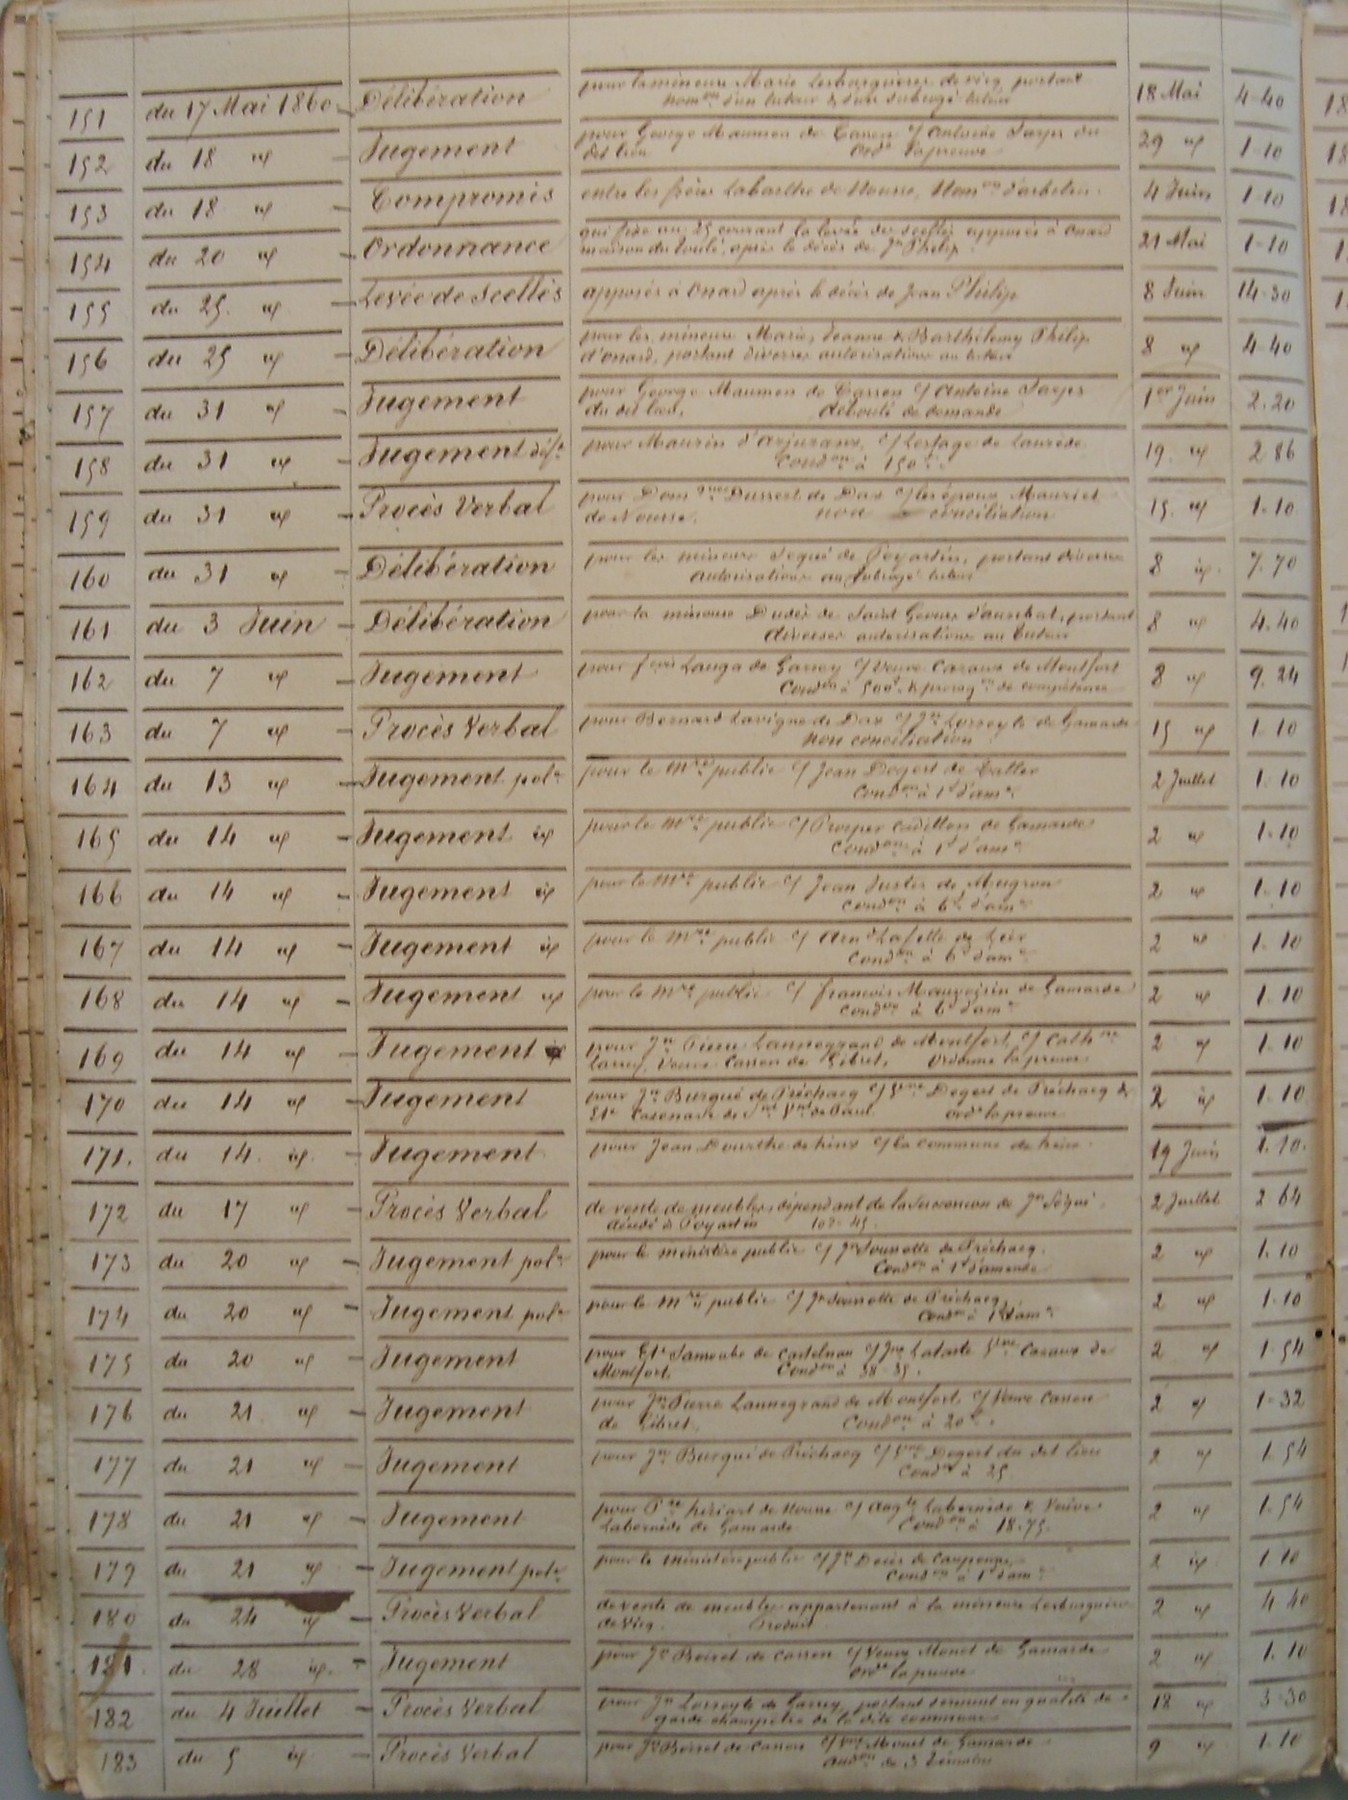 151 du 17 Mai 1860 Délibération pour la mineure Marie Lesbarguères de Vicq portant 18 Mai 4-40
nom.on d'un tuteur & d'un subrogé tuteur
152 du 18 Jugement pour George Maumen de Cassen c/ Antoine Sarps du 29 1-10
dit lieu ord.e la preuve
153 du 18 Compromis entre les frères Labarthe de Nousse, Nom.on d'arbitres. 4 Juin 1-10
154 du 20 Ordonnance qui fixe au 25 courant la levée des scellés apposés à Onard 21 Mai 1-10
maison du Toulé, après le décès de Jn Philip
155 du 25. Levée de Scellés apposés à Onard après le décès de Jean Philip 8 Juin 14-30
156 du 25 Délibération pour les mineurs Marie, Jeanne & Barthélemy Philip 8 4-40
d'Onard, portant diverses autorisations au tuteur
157 du 31 Jugement pour George Maumen de Cassen c/ Antoine Sarps 1er Juin 2.20
du dit lieu, débouté de demande
158 du 31 Jugement déf.t pour Maurin d'Arjuzanx, c/ Lesfage de Laurède 19. 2 86
Cond.on à 150 f.
159 du 31 Procès Verbal pour Dom.que Dussert de Dax c/ les époux Mauriet 15. 1-10
de Nousse. non conciliation
160 du 31 Délibération pour les mineurs Séqué de Poyartin, portant diverses 8 7.70
autorisations au subrogé tuteur
161 du 3 Juin Délibération pour la mineure Dudès de Saint Geours d'auribat, portant 8 4.40
diverses autorisations au tuteur
162 du 7 Jugement pour f.çois Lauga de Garrey c/ Veuve Cazaux de Montfort 8 9.24
Cond.on à 500 f. & prorog.on de compétence
163 du 7 Procès Verbal pour Bernard Lavigne de Dax c/ Jn Losseyte de Gamarde 15 1-10
non conciliation
164 du 13 Jugement pol.e pour le M.re public c/ Jean Degert de Taller 2 Juillet 1.10
Cond.on à 1 f d'am.e
165 du 14 Jugement pour le M.re public c/ Prosper Cadillon de Gamarde 2 1-10
Cond.on à 1 f d'am.e
166 du 14 Jugement pour le M.re public c/ Jean Justes de Mugron 2 1.10
Cond.on à 6 f. d'am.e
167 du 14 Jugement pour le M.re public c/ Arn.d Lafitte de Lier 2 1.10
Cond.on à 6 f d'am.e
168 du 14 Jugement pour le M.re public c/ francois Mauvoisin de Gamarde 2 1.10
Cond.on à 6 f d'am.e
169 du 14 Jugement pour Jn Pierre Lannegrand de Montfort, c/ Cath.ne 2 1.10
Larrey, Veuve Cassen de Gibret, ordonne la preuve
170 du 14 Jugement pour Jn Burgué de Préchacq c/ Degert de Préchacq & 2 1.10
Et.e Casenave de S.nt V.nt de Paul ord.e la preuve
171. du 14. Jugement pour Jean Dourthe de hinx c/ la commune de hinx. 19 Juin 1.10.
172 du 17 Procès Verbal de vente de meubles dépendant de la Succession de Jn Séqué 2 Juillet 2 64
décédé à Poyartin 102-45.
173 du 20 Jugement pol.e pour le ministère public c/ Jn de Préchacq. 2 1.10
Cond.on à 1 f d'amende
174 du 20 Jugement pol.e pour le M.re public c/ Jn de Préchacq 2 1.10
Cond.on à 1 f d'am.e
175 du 20 Jugement pour Et.e Lamoube de Castelnau c/ Lataste Cazaux de 2 1-54
Montfort. Cond.on à 38-35.
176 du 21 Jugement pour Jn Pierre Lannegrand de Montfort, c/ Veuve Cassen 2 1-32
de Gibret, Cond.on à 20 f.
177 du 21 Jugement pour Jn Burgué de Préchacq c/ Degert du dit lieu 2 1.54
Cond.on à 25
178 du 21 Jugement pour P.re hiriart de Nousse c/ Aug.te Labernède & Veuve 2 1.54
Labernède de Gamarde Cond.on à 18.75.
179 du 21 Jugement pol.e pour le ministère public c/ Jn Decès de Caupenne, 2 1.10
Cond.on à 1 f d'am.e
180 du 24 Procès Verbal de vente de meubles appartenant à la mineure Lesbarguères 2 4 40
de Vicq. Produit
181. du 28 Jugement pour Jn Boiret de Cassen c/ Veuve Monet de Gamarde 2 1.10
ord.e la preuve
182 du 4 Juillet Procès Verbal pour Jn Losseyte de Garrey, portant serment en qualité de 18 3-30
garde champêtre de la dite commune
183 du 5 Procès Verbal pour Jn Boiret de Cassen c/ V.ve Monet de Gamarde 9 1.10
aud.on de 3 témoins